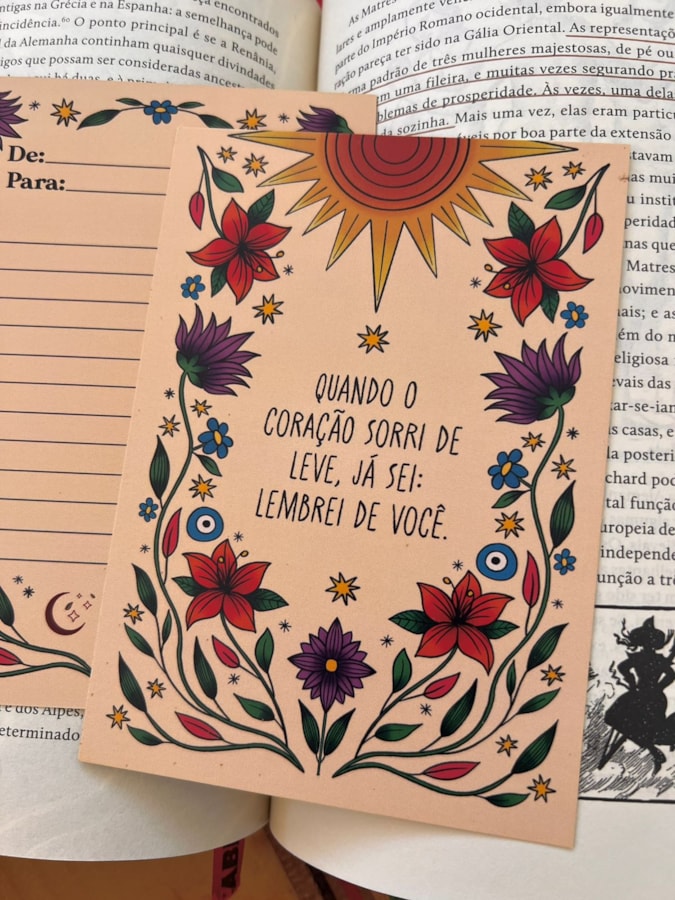 antigas na Grécia e na Espanha: a semelhança pode
incidência.⁶⁰ O ponto principal é se a Renânia,
l da Alemanha continham quaisquer divindades
igos que possam ser consideradas
De:
Para:
QUANDO O
CORAÇÃO SORRI DE
LEVE, JÁ SEI:
LEMBREI DE VOCÊ.
e dos Alpes,
determinado
As Matres
lares e amplamente
parte do Império Romano ocidental, embora igualmente
ração pareça ter sido na Gália Oriental. As representaçõ
ma padrão de três mulheres majestosas, de pé ou
em uma fileira, e muitas vezes segurando
blemas de prosperidade. Às vezes, uma dela
da sozinha. Mais uma vez, elas eram
por boa parte da extensão
stavam
as mui
u instit
peridad
nas que
Matres
movimen
ais; e as
ém do n
eligiosa
vais das
tar-se-ian
s casas, e
la posteri
chard pod
tal função
uropeia de
independe
unção a trê
AB